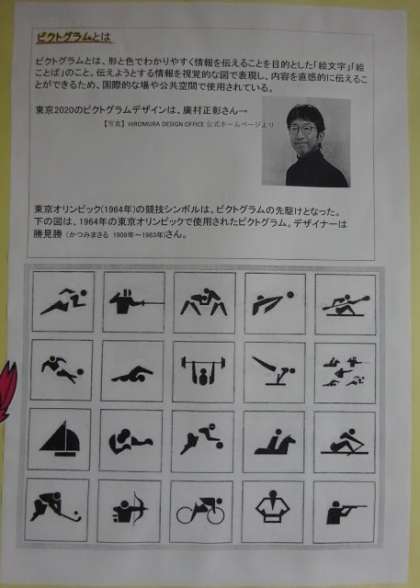 ピクトグラムとは
ピクトグラムとは、形と色でわかりやすく情報を伝えることを目的とした「絵文字」「絵
ことば」のこと、伝えようとする情報を視覚的な図で表現し、内容を直感的に伝えるこ
とができるため、国際的な場や公共空間で使用されている。
東京2020のピクトグラムデザインは、廣村正彰さん→
【写真】HIROMURA DESIGN OFFICE 公式ホームページより
東京オリンピック(1964年)の競技シンボルは、ピクトグラムの先駆けとなった。
下の図は、1964年の東京オリンピックで使用されたピクトグラム。デザイナーは
勝見勝 (かつみまさる 1909年〜1983年)さん。